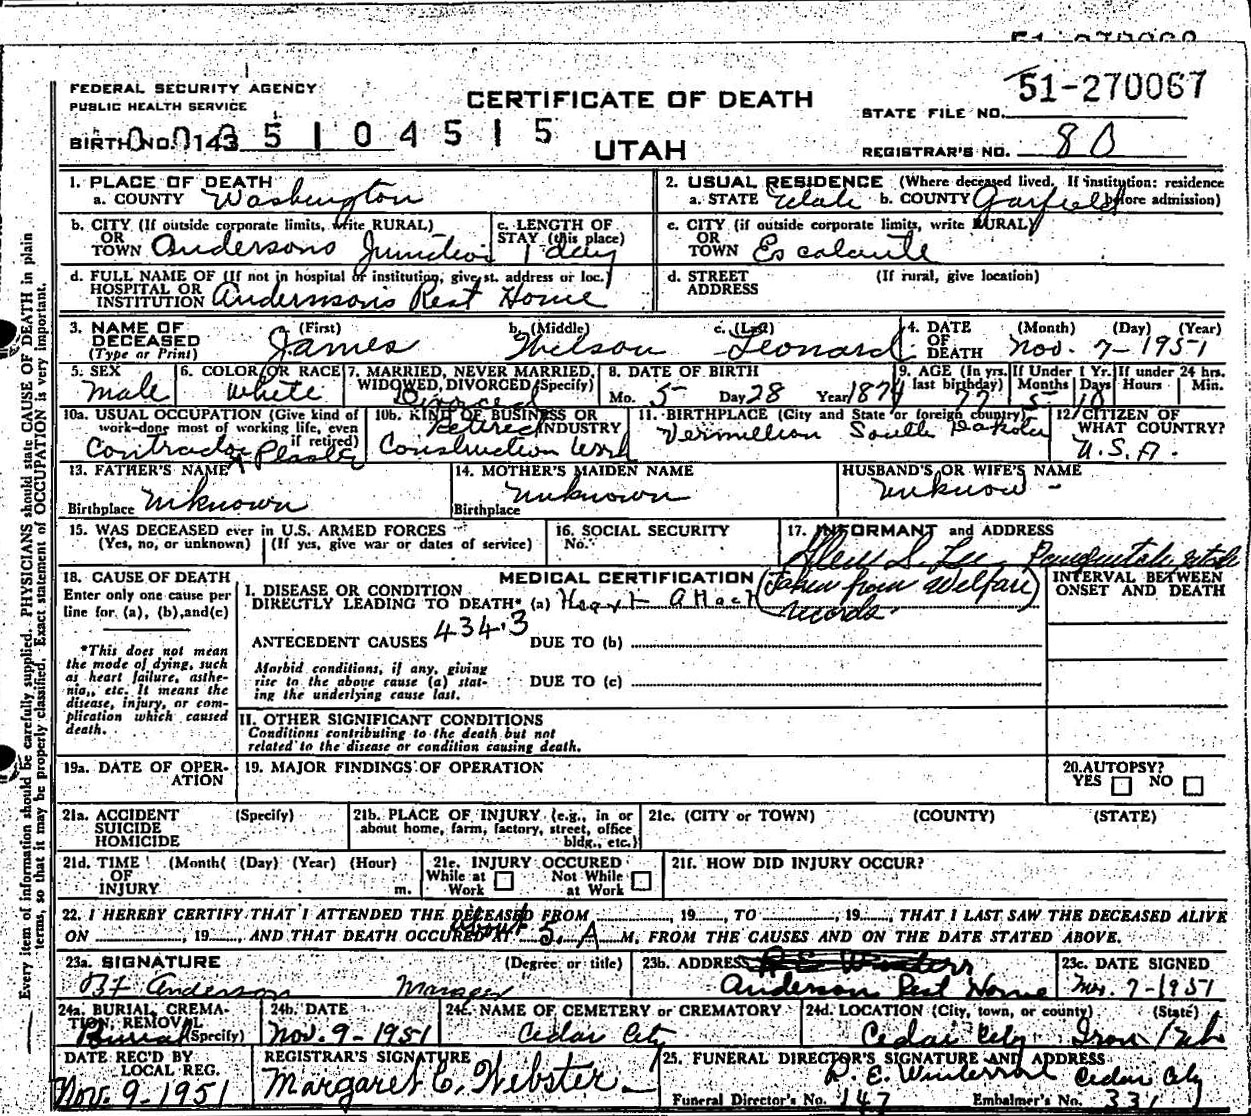 FEDERAL SECURITY AGENCY
PUBLIC HEALTH SERVICE
CERTIFICATE OF DEATH
UTAH
STATE FILE NO. 51-270067
BIRTH NO. 0143 5104515
REGISTRAR'S NO. 80
1. PLACE OF DEATH
a. COUNTY Washington
2. USUAL RESIDENCE (Where deceased lived. If institution: residence before admission)
a. STATE Utah b. COUNTY Garfield
b. CITY (If outside corporate limits, write RURAL)
OR
TOWN Andersons Junction
c. LENGTH OF
STAY (this place) 1 day
c. CITY (if outside corporate limits, write RURAL)
OR
TOWN Escalante
d. FULL NAME OF (If not in hospital or institution, give st. address or loc.)
HOSPITAL OR
INSTITUTION Andermson's Rest Home
d. STREET (If rural, give location)
ADDRESS
3. NAME OF
DECEASED
(Type or Print)
(First) b. (Middle) c. (Last)
James Wilson Leonard
4. DATE (Month) (Day) (Year)
OF
DEATH Nov. 7-1951
5. SEX
Male
6. COLOR OR RACE
White
7. MARRIED, NEVER MARRIED,
WIDOWED, DIVORCED (Specify)
Divorced
8. DATE OF BIRTH
Mo. 5 Day 28 Year 1874
9. AGE (In yrs. last birthday) If Under 1 Yr. If under 24 hrs.
Months Days Hours Min.
77 5 10
10a. USUAL OCCUPATION (Give kind of
work done most of working life, even
if retired)
Contractor & Plaster
10b. KIND OF BUSINESS OR
INDUSTRY
Retired
Construction Work
11. BIRTHPLACE (City and State or foreign country)
Vermillion South Dakota
12. CITIZEN OF
WHAT COUNTRY?
U.S.A.
13. FATHER'S NAME
Birthplace unknown
14. MOTHER'S MAIDEN NAME
unknown
Birthplace
HUSBAND'S OR WIFE'S NAME
unknow -
15. WAS DECEASED ever in U.S. ARMED FORCES
(Yes, no, or unknown) (If yes, give war or dates of service)
16. SOCIAL SECURITY
No.
17. INFORMANT and ADDRESS
Allen S. Lee, Panguitch Utah
(taken from Welfare
records.)
18. CAUSE OF DEATH
Enter only one cause per
line for (a), (b), and (c)
*This does not mean
the mode of dying, such
as heart failure, asthe-
nia, etc. It means the
disease, injury, or com-
plication which caused
death.
MEDICAL CERTIFICATION
INTERVAL BETWEEN
ONSET AND DEATH
I. DISEASE OR CONDITION
DIRECTLY LEADING TO DEATH* (a) Heart attack
ANTECEDENT CAUSES 434.3 DUE TO (b)
Morbid conditions, if any, giving
rise to the above cause (a) stat-
ing the underlying cause last.
DUE TO (c)
II. OTHER SIGNIFICANT CONDITIONS
Conditions contributing to the death but not
related to the disease or condition causing death.
19a. DATE OF OPER-
ATION
19. MAJOR FINDINGS OF OPERATION
20. AUTOPSY?
YES NO
21a. ACCIDENT (Specify)
SUICIDE
HOMICIDE
21b. PLACE OF INJURY (e.g., in or
about home, farm, factory, street, office
bldg., etc.)
21c. (CITY or TOWN) (COUNTY) (STATE)
21d. TIME (Month) (Day) (Year) (Hour)
OF
INJURY m.
21e. INJURY OCCURED
While at Work Not While at Work
21f. HOW DID INJURY OCCUR?
22. I HEREBY CERTIFY THAT I ATTENDED THE DECEASED FROM , 19 , TO , 19 , THAT I LAST SAW THE DECEASED ALIVE
ON , 19 , AND THAT DEATH OCCURED AT about 5. A M, FROM THE CAUSES AND ON THE DATE STATED ABOVE.
23a. SIGNATURE (Degree or title)
BF Anderson Manager
23b. ADDRESS
Anderson Rest Home
23c. DATE SIGNED
Nov. 7-1951
24a. BURIAL, CREMA-
TION, REMOVAL
(Specify) Burial
24b. DATE
Nov. 9-1951
24c. NAME OF CEMETERY or CREMATORY
Cedar City
24d. LOCATION (City, town, or county) (State)
Cedar City Iron Utah
DATE REC'D BY
LOCAL REG.
Nov. 9-1951
REGISTRAR'S SIGNATURE
Margaret C. Webster
25. FUNERAL DIRECTOR'S SIGNATURE AND ADDRESS
Cedar City
Funeral Director's No. 147 Embalmer's No. 331
Every item of information should be carefully supplied. PHYSICIANS should state CAUSE OF DEATH in plain
terms, so that it may be properly classified. Exact statement of OCCUPATION is very important.